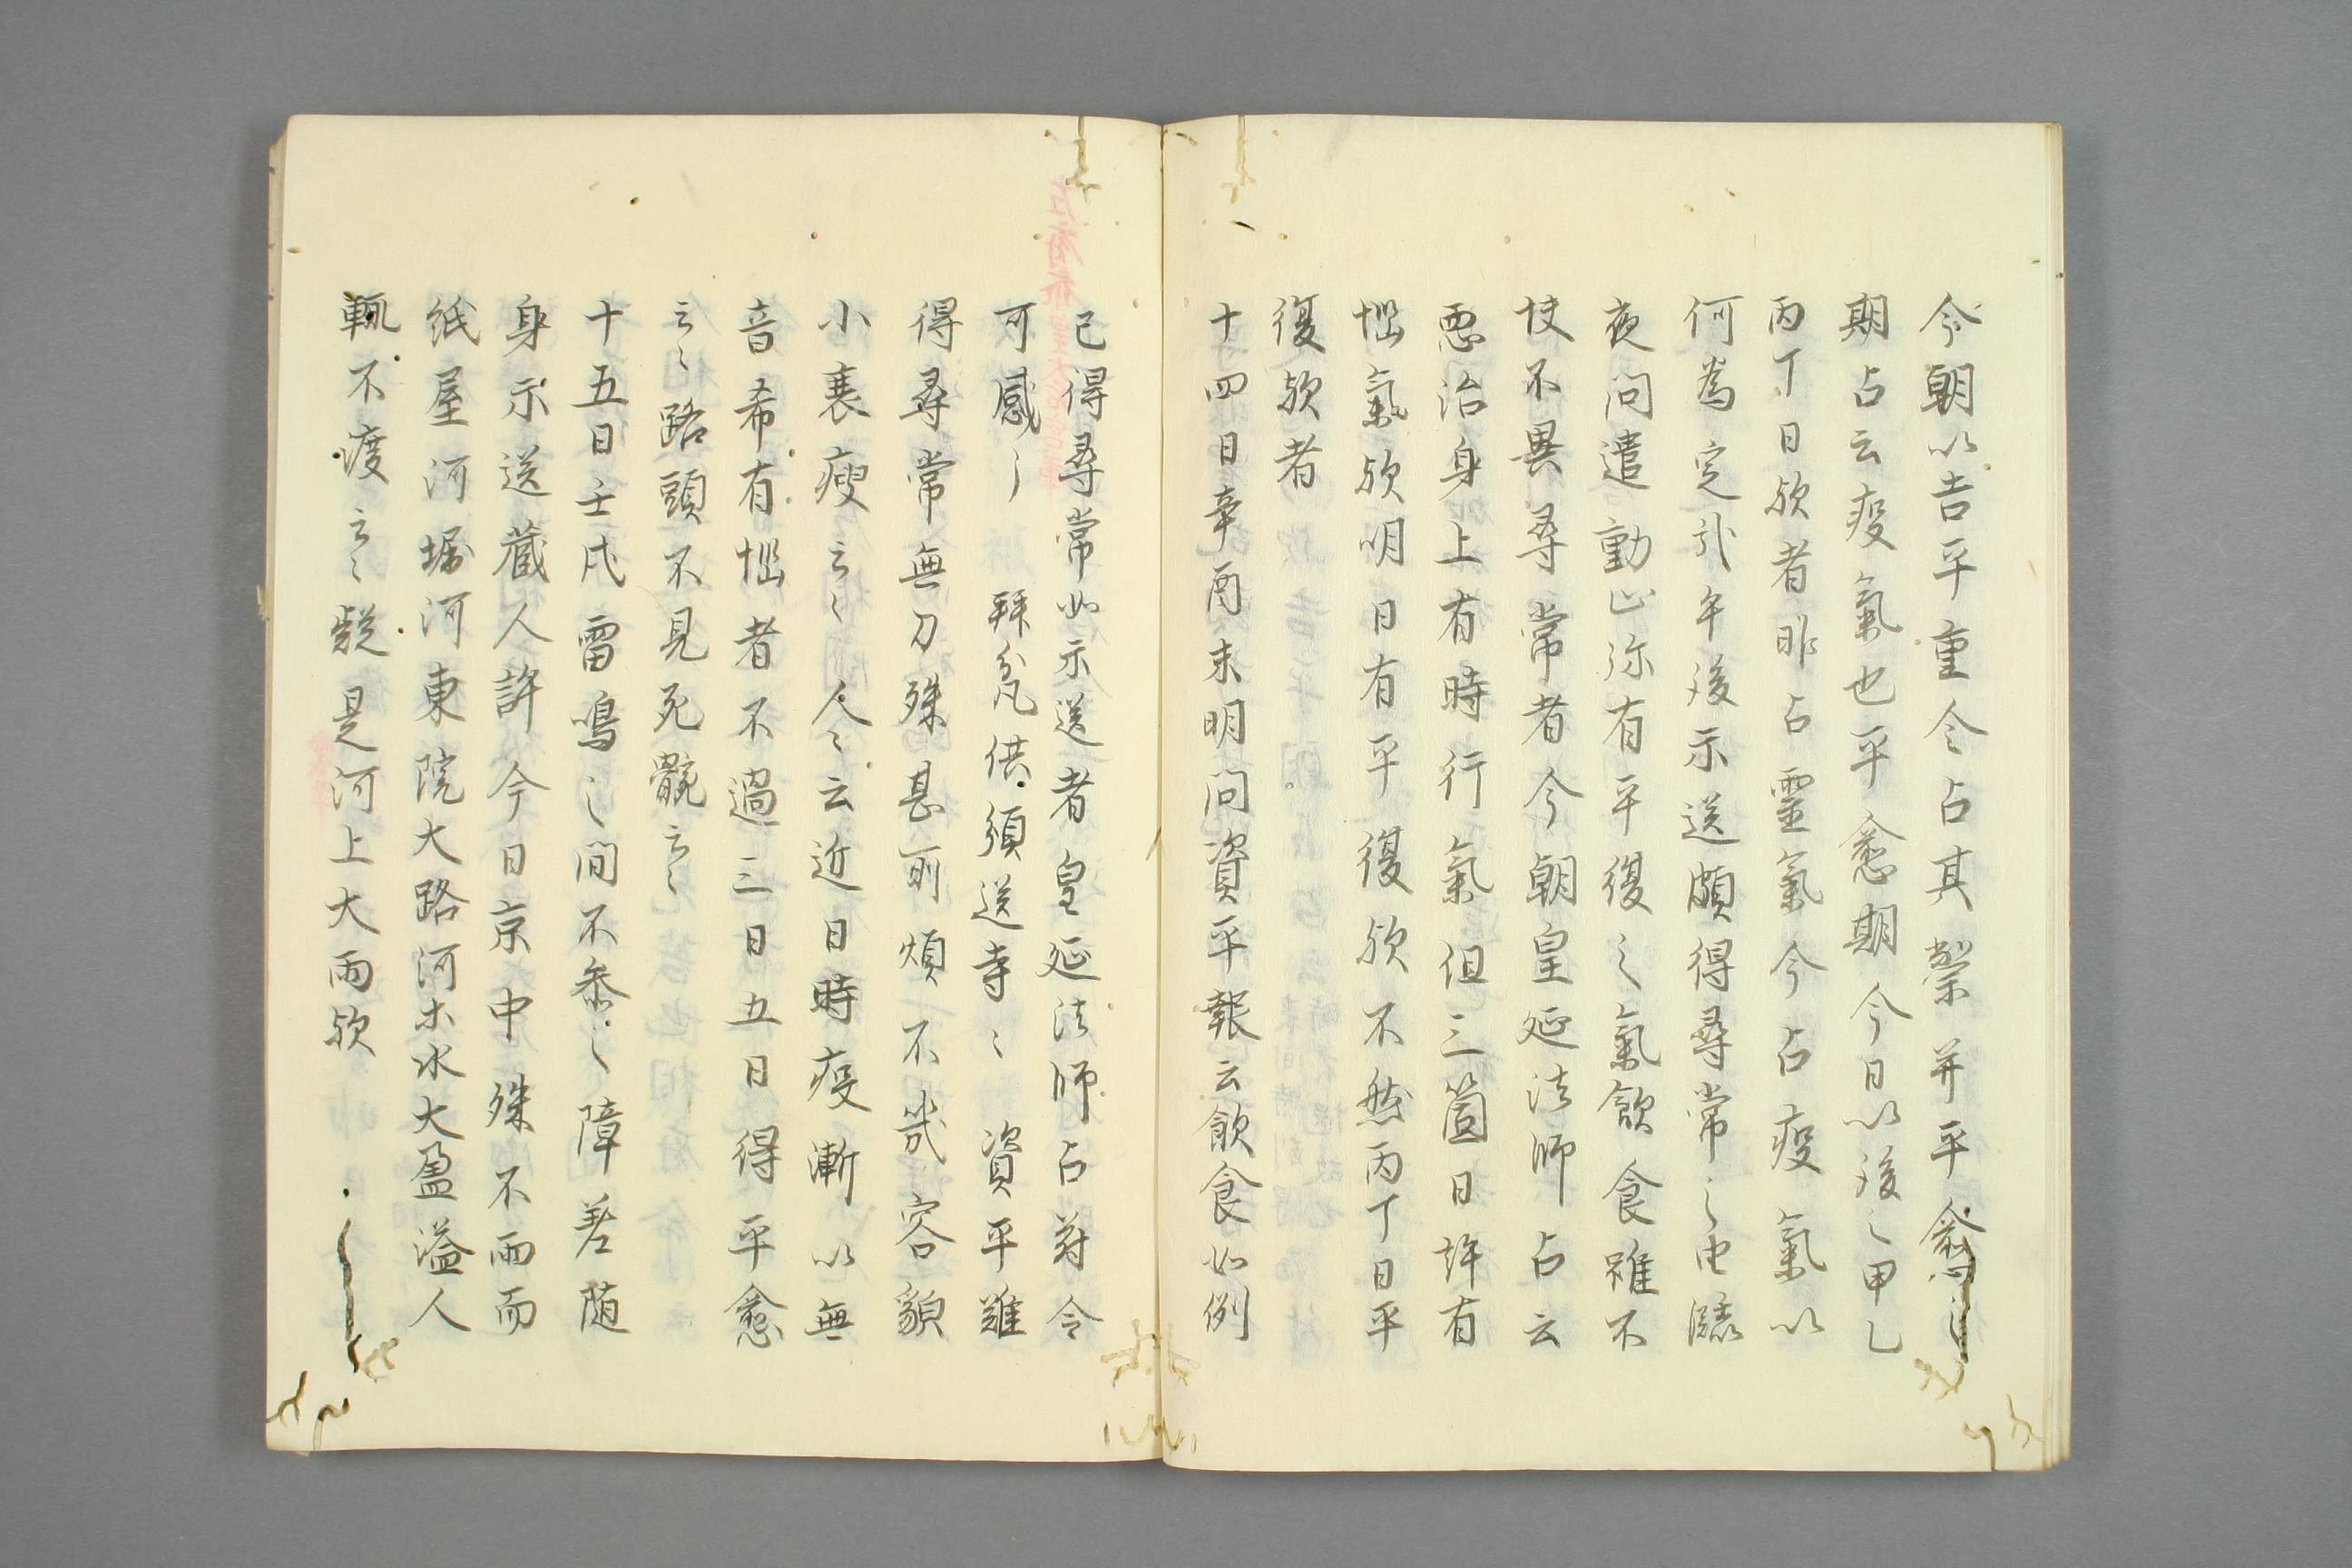 今朝以吉平重令占其祟并平愈
期占云疫氣也平愈期今日以後之甲乙
丙丁日欤者昨占霊氣今占疫氣以
何為定貳午後示送頗得尋常之由
夜問遣動止弥有平復之氣飲食雖不
快不異尋常者今朝皇延法師占云
惡治身上有時行氣但三箇日許有
惱氣欤明日有平復欤不然丙丁日平
復欤者
十四日辛酉未明問資平報云飲食如例
已得尋常如示送者皇延法師占尅令
可感之 拜瓫凡供須送寺々 資平雖
得尋常無力殊甚所煩不幾容貌
小衰瘦云々人々云近日時疫漸以無
音希有惱者不過三日五日得平愈
云々路頭不見死骸云々
十五日壬戌雷鳴之間不参之障差随
身示送蔵人許今日京中殊不雨而
紙屋河堀河東院大路河等水大盈溢人
輙不渡云々疑是河上大雨欤